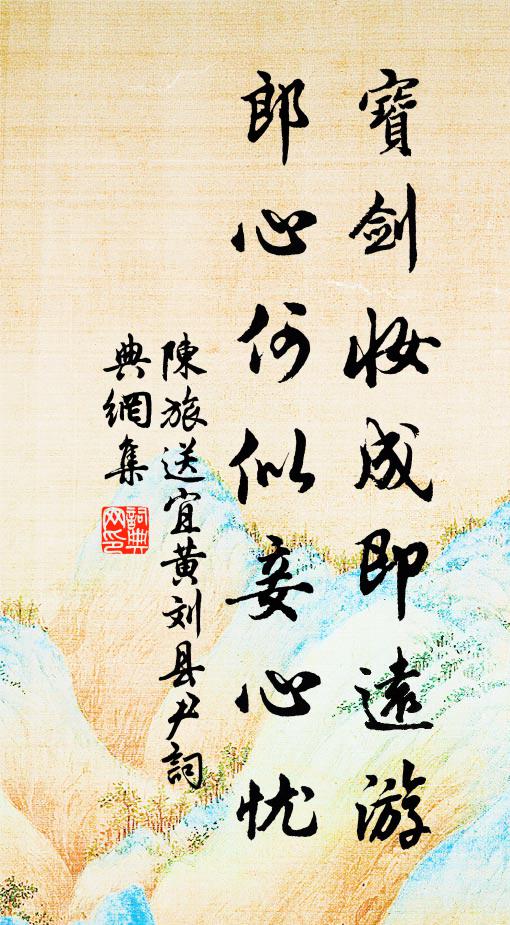 寶剑妝成即遠游
郎心何似妾心忧
陳旅送宜黄刘县尹詞
典網集
詞典网印